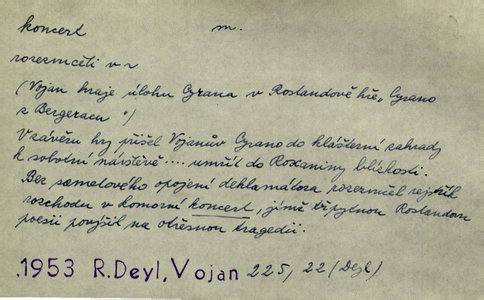 koncert m.
rozezvučeti v r
(Vojan hraje úlohu Cyrana v Rostandově hře „Cyrano
z Bergeracu")
V závěru hry přišel Vojanův Cyrano do klášterní zahrady
k sobotní návštěvě .... umříti do Roxaniny blízkosti.
Bez sametového opojení deklamátora rozezvučel rejstřík
rozchodu v komorní koncert, jímž třpytnou Rostandovu
poesii povýšil na otřesnou tragedii.
.1953 R. Deyl, Vojan 225, 22 (Deyl)